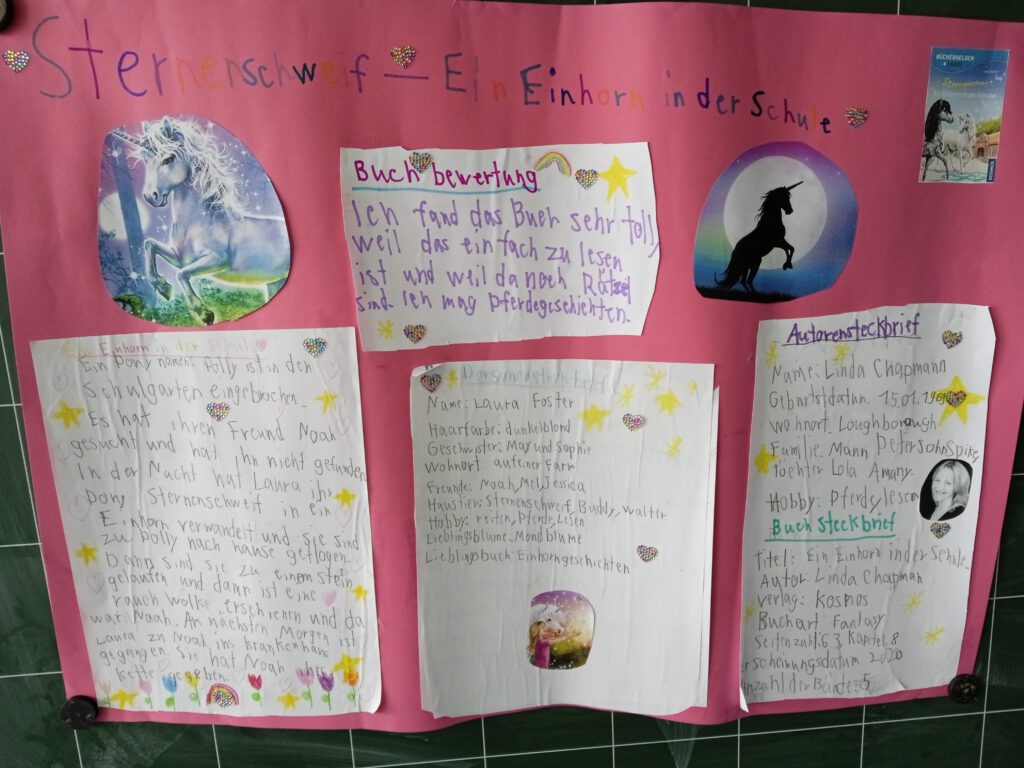 Sternenschweif – Ein Einhorn in der Schule
BÜCHERHELDEN
Buchbewertung
Ich fand das Buch sehr toll,
weil das einfach zu lesen
ist und weil da noch Rätzel
sind. Ich mag Pferdegeschichten.
Ein Einhorn in der Schule
Ein Pony namens Polly ist in den
Schulgarten eingebrochen.
Es hat ihren Freund Noah
gesucht und hat ihn nicht gefunden.
In der Nacht hat Laura ihr
Pony Sternenschweif in ein
Einhorn verwandelt und sie sind
zu Polly nach hause geflogen.
Dann sind sie zu einem stein
gelaufen und dann ist eine
rauch wolke erschienen und da
war Noah. An nächsten Morgen ist
Laura zu Noah ins krankenhaus
gegangen. Sie hat Noah ihre
kette gegeben.
Personensteckbrief
Name: Laura Foster
Haarfarbe: dunkelblond
Geschwister: May und Sophie
Wohnort: auf einer Farm
Freunde: Noah, Mel, Jessica
Haustier: Sternenschweif, Buddy, Walter
Hobby: reiten, Pferde, Lesen
Lieblingsblume: Mondblume
Lieblingsbuch: Einhorngeschichten
Autorensteckbrief
Name: Linda Chapmann
Geburtsdatum: 15.01.
Wohnort: Loughborough
Familie: Mann Peter John Spike,
töchter Lola Amany.
Hobby: Pferde, lesen
Buch steckbrief
Titel: Ein Einhorn in der Schule.
Autor: Linda Chapman
Verlag: Kosmos
Buchart: Fantasy
Seitenzahl: 63 Kapitel: 8
erscheinungsdatum: 2020
anzahl der Bände: 5